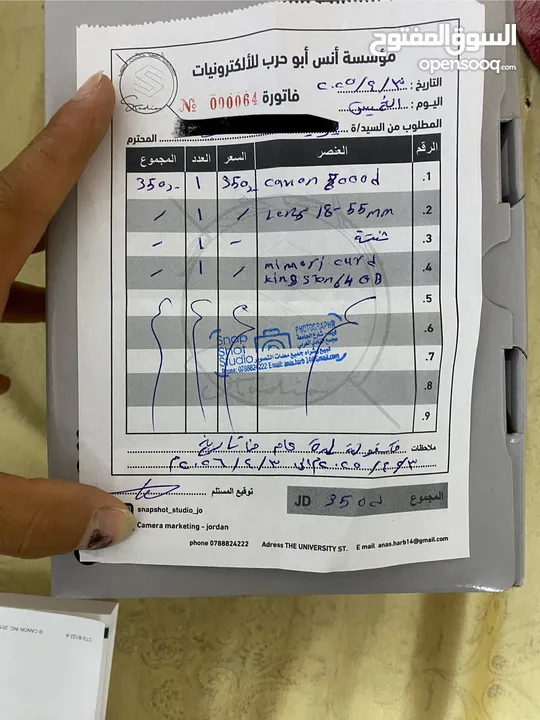 السوق المفتوح
opensooq.com
مؤسسة أنس أبو حرب للألكترونيات
التاريخ : ٢٠٢٥/٤/٣
فاتورة № 000064
اليوم : الخميس
المطلوب من السيد/ة
المحترم
الرقم العنصر السعر العدد المجموع
.1 canon 2000d 350 1 350
.2 Lens 18-55mm 1
.3 شنتة - 1 -
.4 mimori card 1
kingston 64 GB
.5
.6
.7
.8
.9
Snap Shot Studio
PHOTOGRAPHY
Phone: 0788824222 Email: anas.harb14@gmail.com
ملاحظات مكفولة لمدة عام من تاريخ
٢٠٢٥/٤/٣ الى ٢٠٢٦/٤/٣
توقيع المستلم
المجموع 350 JD
snapshot_studio_jo
Camera marketing - jordan
phone 0788824222 Adress THE UNIVERSITY ST. E mail anas.harb14@gmail.com
CT2-B122-A
© CANON INC. 201